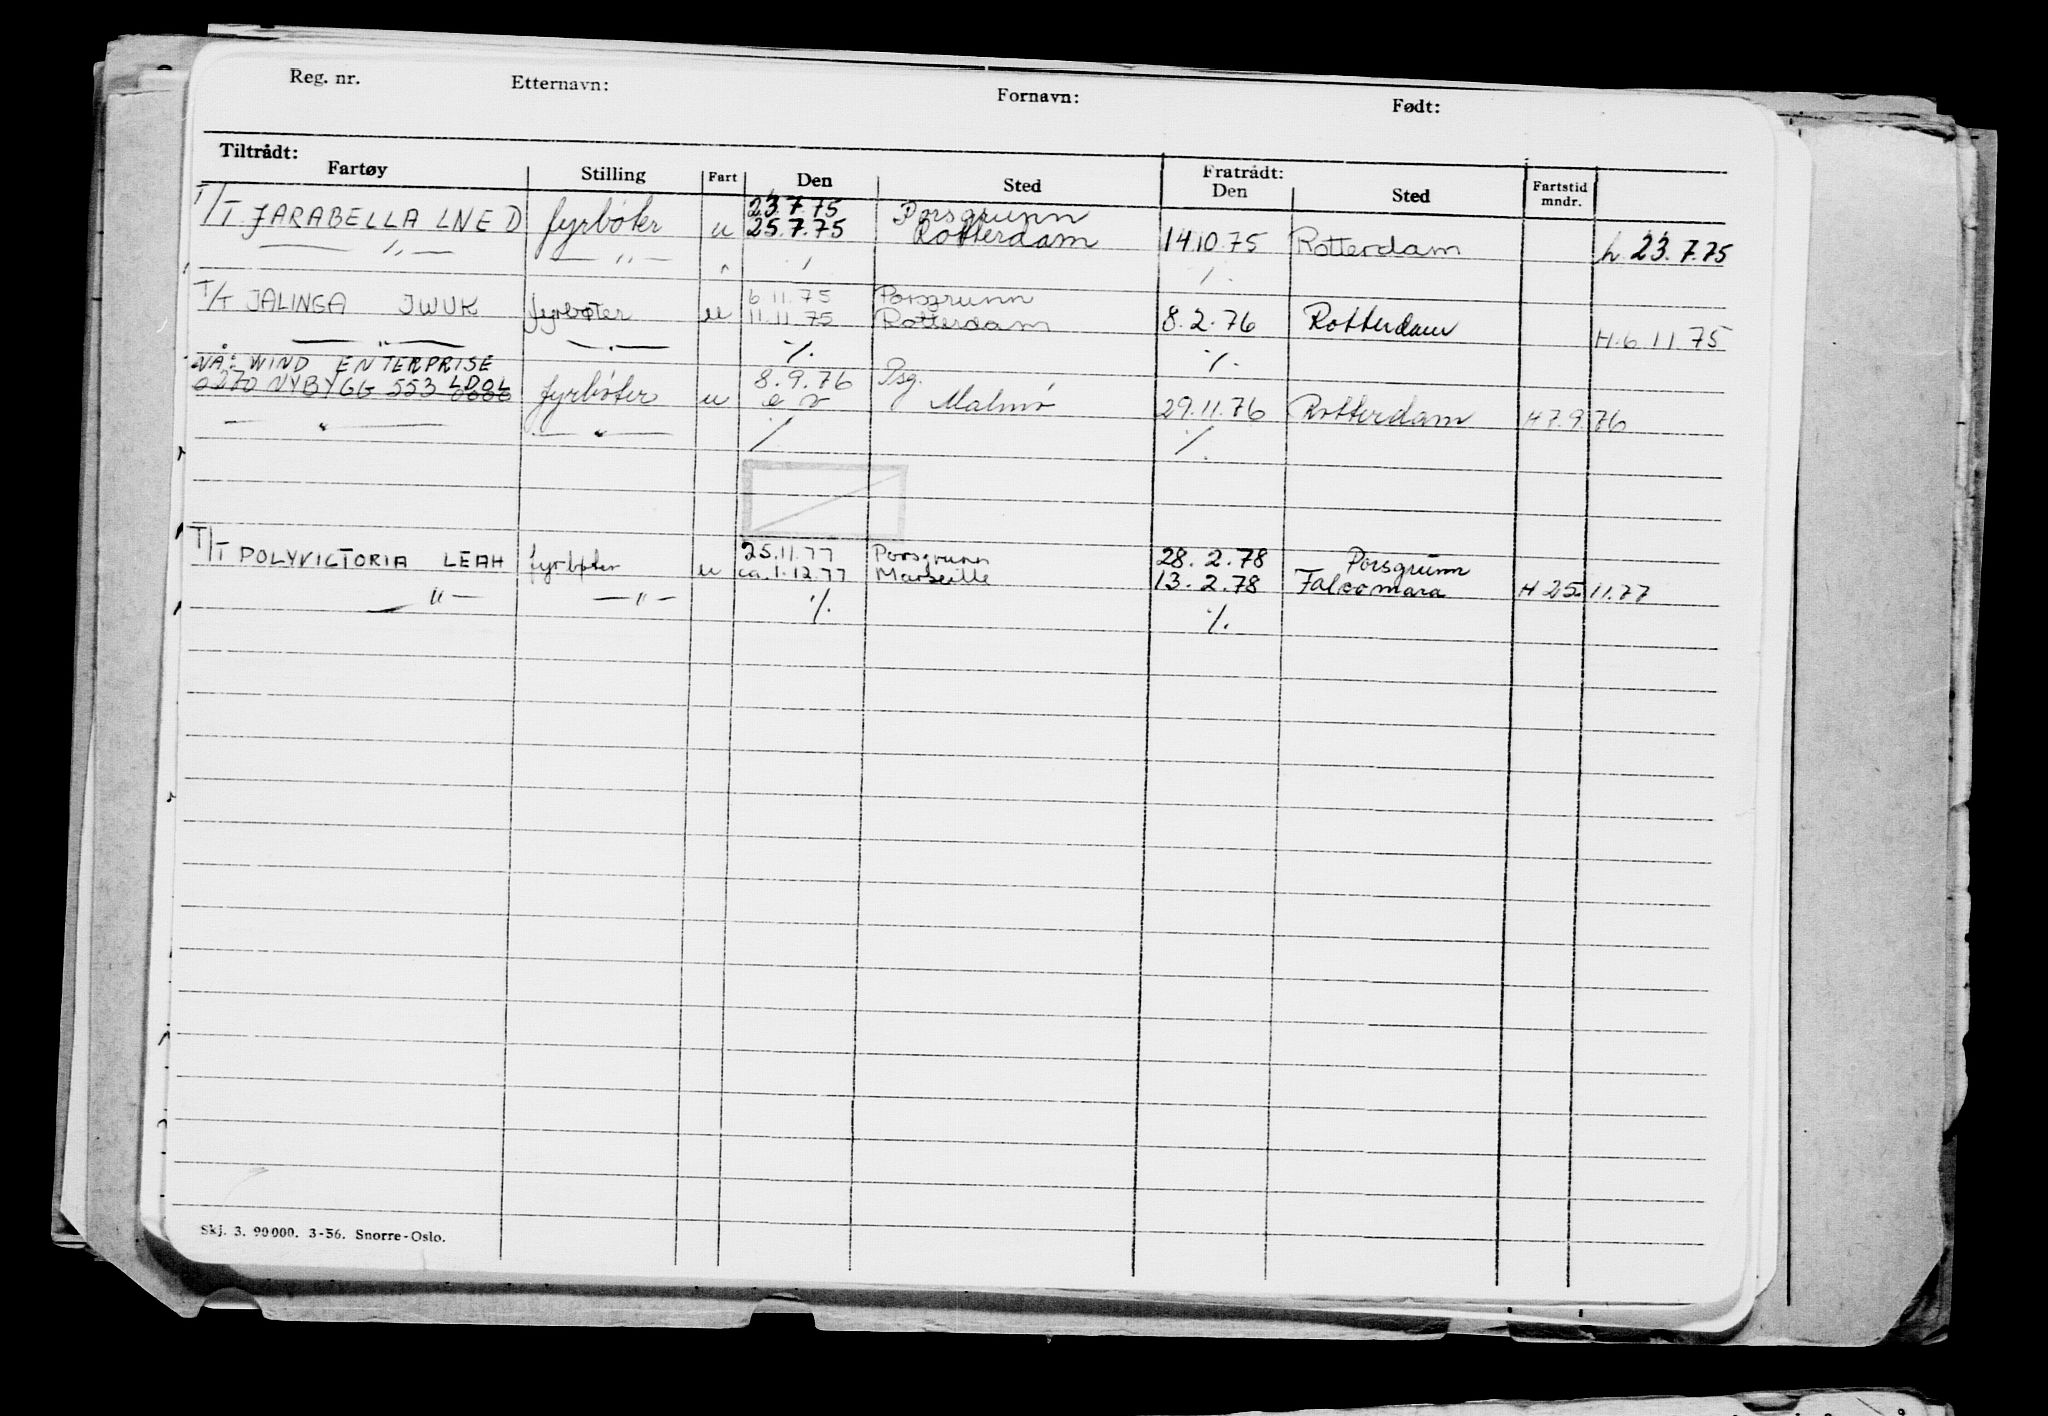 Reg. nr. Etternavn: Fornavn: Født:
Tiltrådt: Fratrådt:
Fartøy Stilling Fart Den Sted Den Sted Fartstid mndr.
23.7.75 Porsgrunn
T/T JARABELLA LNED fyrbøter u 25.7.75 Rotterdam 14.10.75 Rotterdam h. 23.7.75
— " — — " — " ·/. ·/.
6.11.75 Porsgrunn
T/T JALINGA JWUK fyrbøter u 11.11.75 Rotterdam 8.2.76 Rotterdam H. 6 11 75
— " — — " — ·/. ·/.
NÅ: WIND ENTERPRISE
0270 NYBYGG 553 LDOL fyrbøter u 8.9.76 Psg. Malmø 29.11.76 Rotterdam H 7.9.76
— " — — " — ·/. ·/.
25.11.77 Porsgrunn 28.2.78 Porsgrunn
T/T POLYVICTORIA LEAH fyrbøter u ca. 1.12.77 Marseille 13.2.78 Falconara H 25.11.77
— " — — " — ·/. ·/.
Skj. 3. 90000. 3-56. Snorre-Oslo.